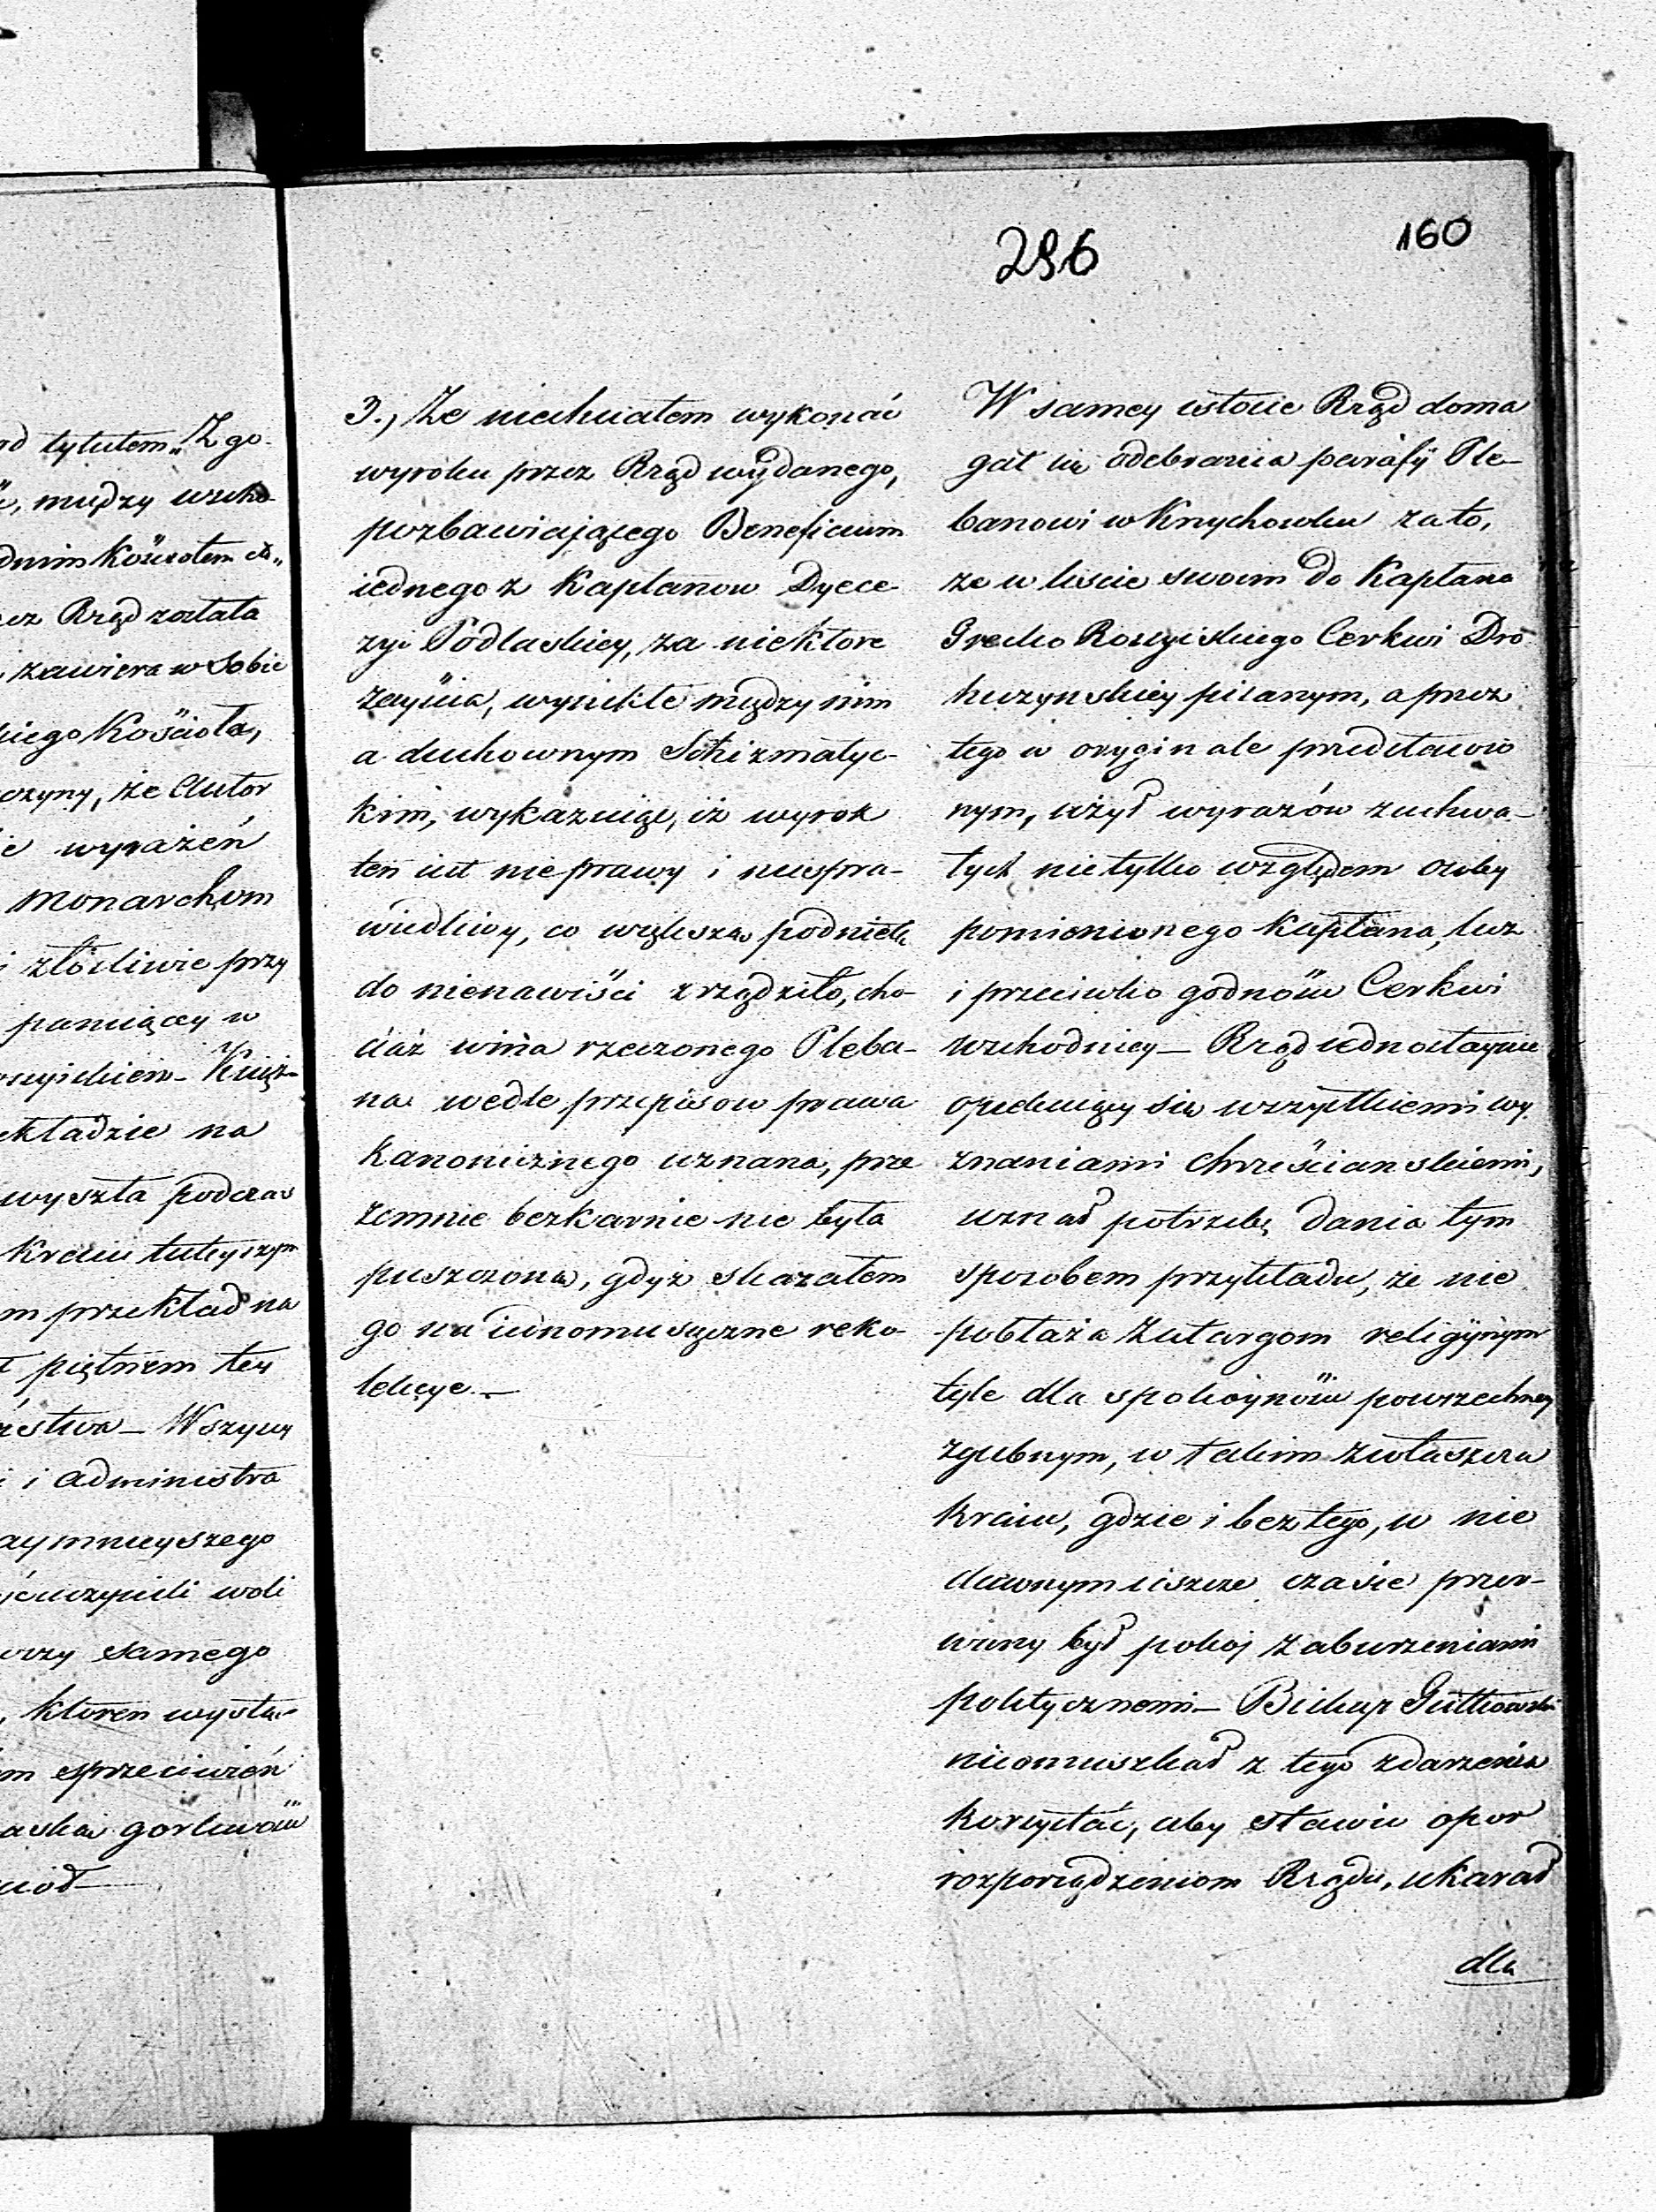 296
160
od tytułem „Zgo-
, między wscho-
dnim Kościołem
ez Rząd została
, zawiera w Sobie
kiego Kościoła,
czyny, że Autor
ie wyrażeń
Monarchom
i złośliwie przy
pamięcy w
Xiąż-
kładzie na
wyszła podczas
Kraiu tuteyszym
m przekład na
piętnem tey
ństwa – Wszyscy
i i administra
aymnieyszego
uczynili woli
orzy samego
, ktoren wysta-
m sprzeciwień
aska gorliwość
3., Że niechciałem wykonać
wyroku przez Rząd wydanego,
pozbawiaiącego Beneficium
iednego z Kapłanow Dyece-
zyi Podlaskiey, za niektore
zayścia, wynikłe między nim
a duchownym Schizmatyc-
kim, wykazuiąc, iż wyrok
ten iest nieprawy i niespra-
wiedliwy, co większą podnietę
do nienawiści zrządziło, cho-
ciaż wina rzeczonego Pleba-
na wedle przepisow prawa
Kanonicznego uznana, prze
zemnie bezkarnie nie była
puszczona, gdyż skazałem
go na iednomiesięczne reko-
lekcye. –
W samey istocie Rząd doma
gał się odebrania parafij Ple-
banowi w Knychowku za to,
że w liście swoim do Kapłana
Grecko Rossyiskiego Cerkwi Dro
hiczynskiey pisanym, a przez
tego w oryginale przedstawio
nym, użył wyrazów zuchwa-
łych nietylko względem osoby
pomienionego Kapłana, lecz
i przeciwko godności Cerkwi
Wschodniey – Rząd iednostaynie
opiekuiący się wszystkiemi wy
znaniami chrześcianskiemi,
uznał potrzebę dania tym
sposobem przykładu, że nie
pobłaża zatargom religijnym
tyle dla spokoyności powszechney
zgubnym, w takim zwłaszcza
Kraiu, gdzie i bez tego, w nie
dawnym ieszcze czasie przer-
wany był pokoj zaburzeniami
politycznemi – Biskup Gutkowski
nieomieszkał z tego zdarzenia
korzystać, aby stawić opor
rozporządzeniom Rządu, ukarał
dla